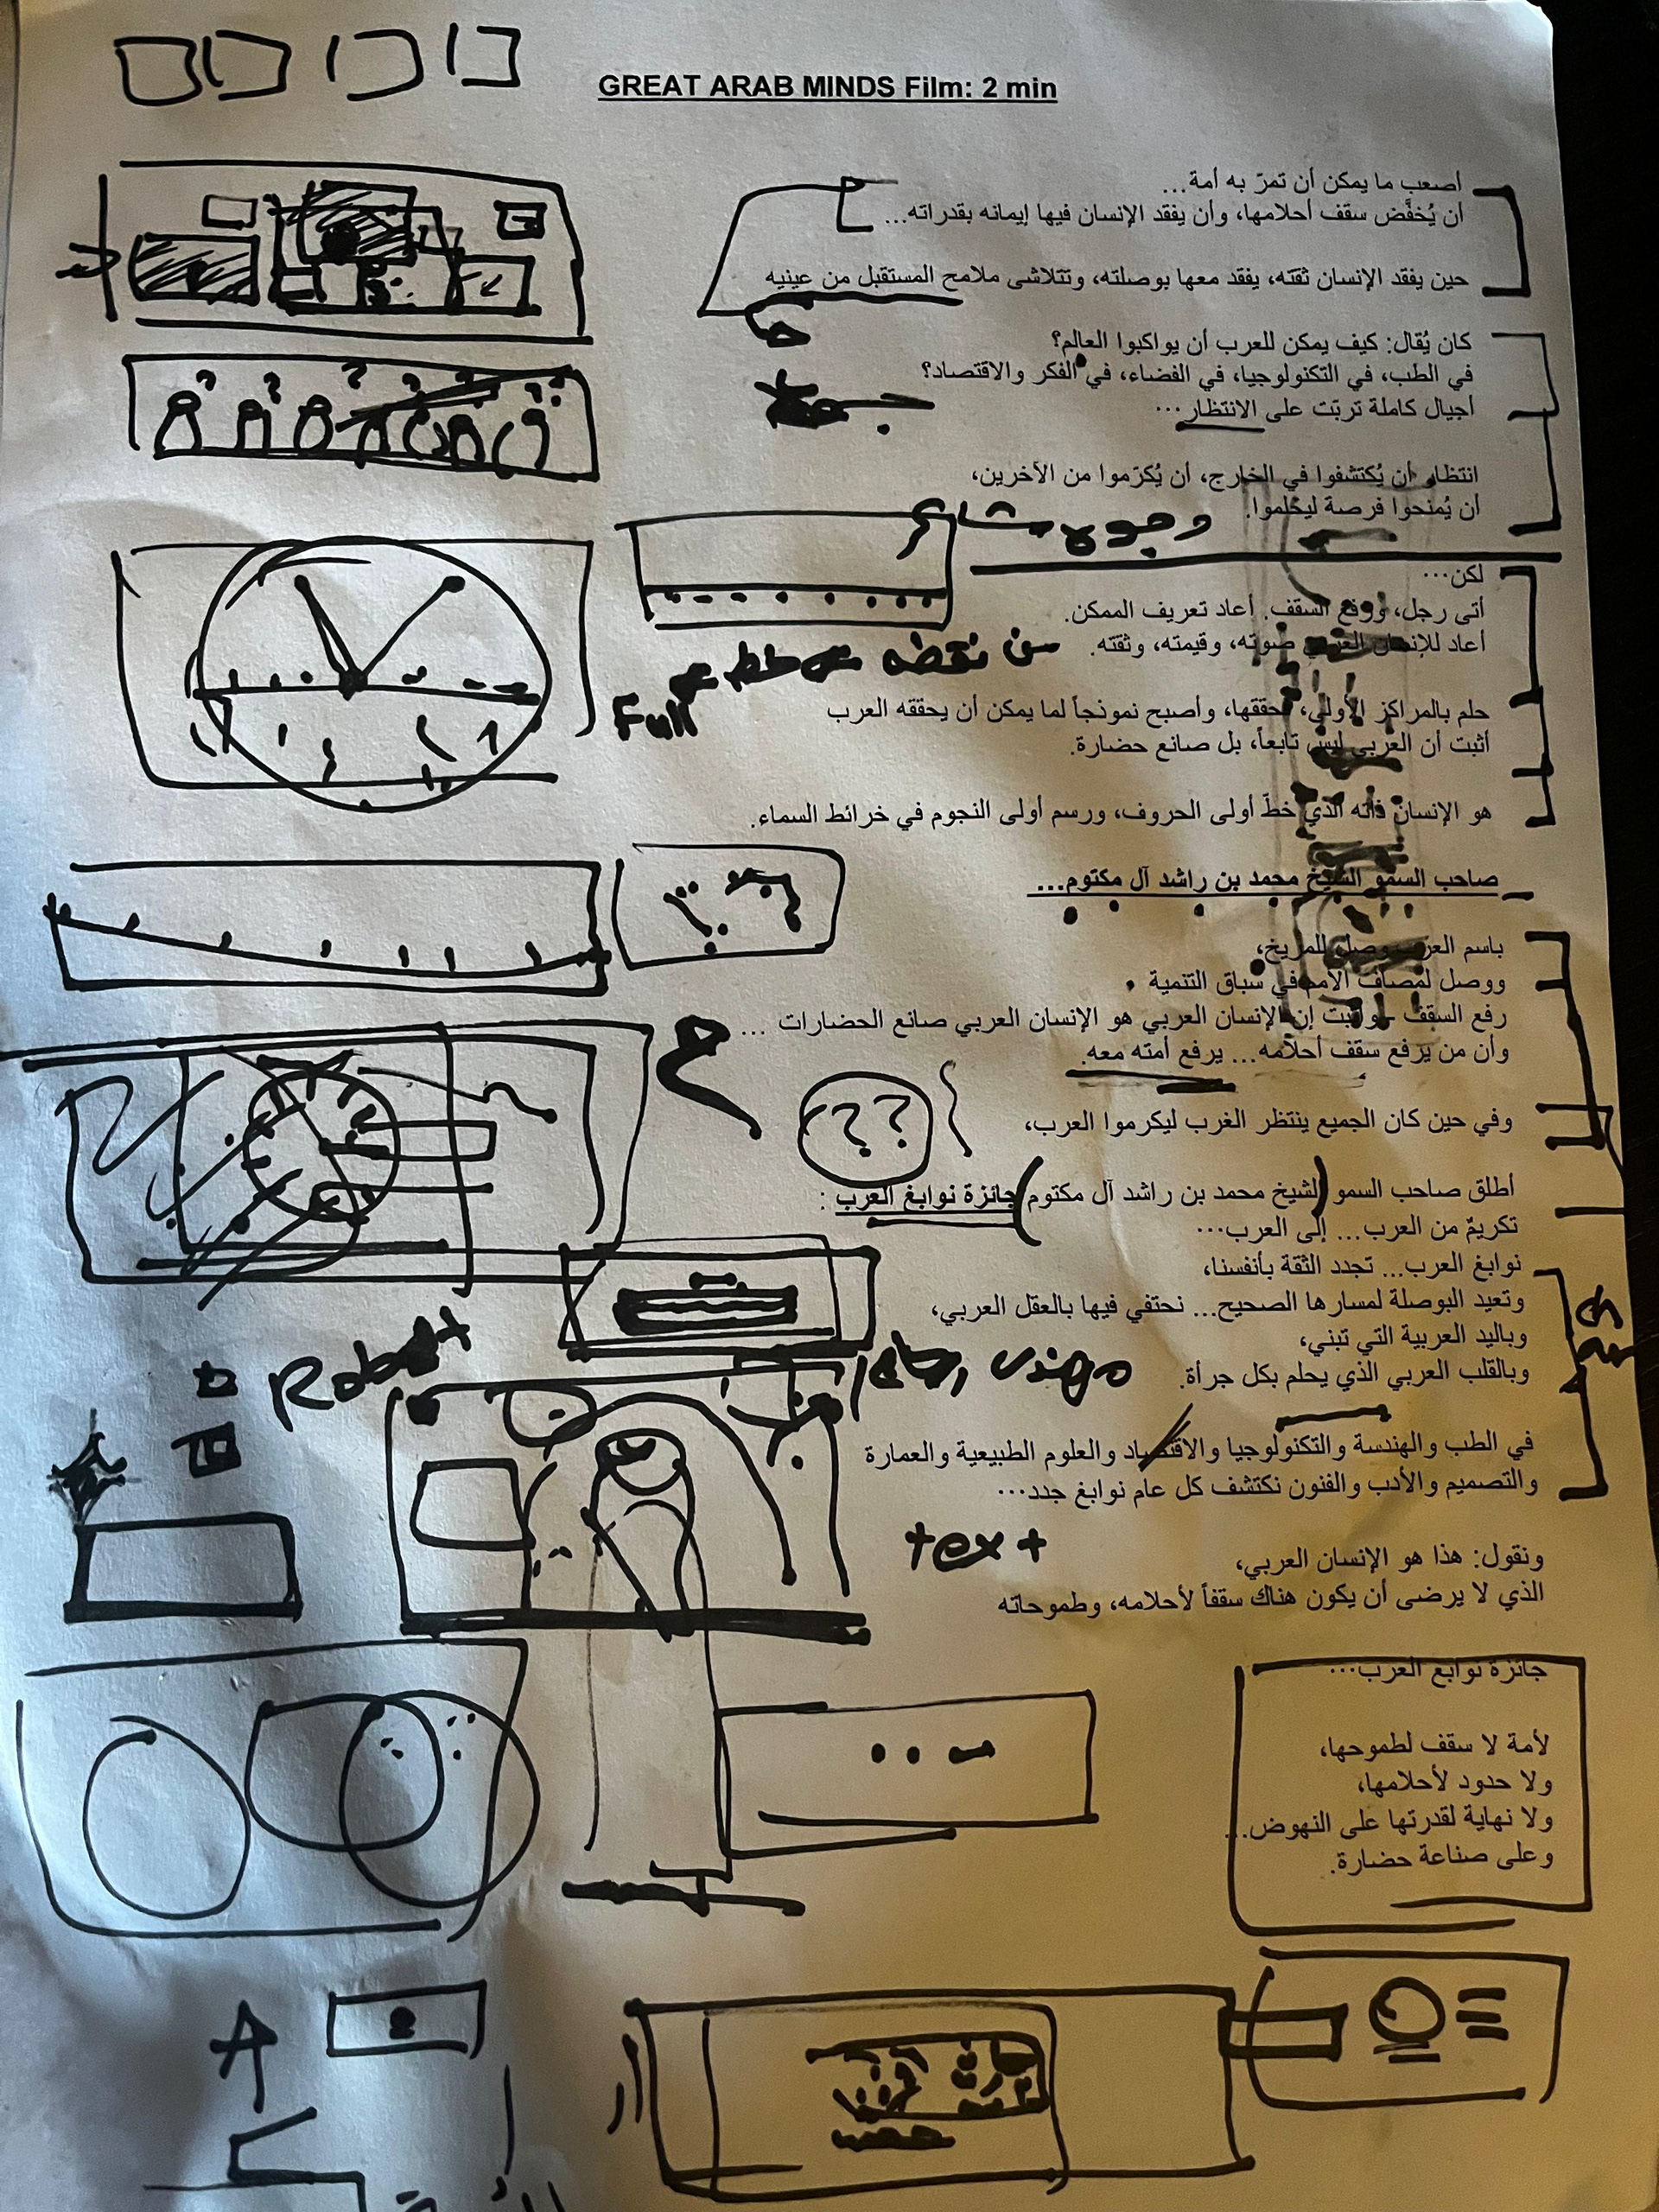 GREAT ARAB MINDS Film: 2 min
أصعب ما يمكن أن تمرّ به أمة...
أن يُخفَّض سقف أحلامها، وأن يفقد الإنسان فيها إيمانه بقدراته...
حين يفقد الإنسان ثقته، يفقد معها بوصلته، وتتلاشى ملامح المستقبل من عينيه
كان يُقال: كيف يمكن للعرب أن يواكبوا العالم؟
في الطب، في التكنولوجيا، في الفضاء، في الفكر والاقتصاد؟
أجيال كاملة تربّت على الانتظار...
انتظار أن يُكتشفوا في الخارج، أن يُكرّموا من الآخرين،
أن يُمنحوا فرصة ليحلموا.
وجوه مشاعر
لكن...
أتى رجل، ورفع السقف. أعاد تعريف الممكن.
أعاد للإنسان العربي صوته، وقيمته، وثقته.
من نقطه
Full
حلم بالمراكز الأولى، فحققها، وأصبح نموذجاً لما يمكن أن يحققه العرب
أثبت أن العربي ليس تابعاً، بل صانع حضارة.
هو الإنسان الذي خطّ أولى الحروف، ورسم أولى النجوم في خرائط السماء.
صاحب السمو الشيخ محمد بن راشد آل مكتوم...
باسم العرب وصل للمريخ،
ووصل لمصاف الأمم في سباق التنمية
رفع السقف وأثبت إن الإنسان العربي هو الإنسان العربي صانع الحضارات ...
وأن من يرفع سقف أحلامه... يرفع أمته معه.
? ?
وفي حين كان الجميع ينتظر الغرب ليكرموا العرب،
أطلق صاحب السمو الشيخ محمد بن راشد آل مكتوم جائزة نوابغ العرب :
تكريمٌ من العرب... إلى العرب...
نوابغ العرب... تجدد الثقة بأنفسنا،
وتعيد البوصلة لمسارها الصحيح... نحتفي فيها بالعقل العربي،
وباليد العربية التي تبني،
وبالقلب العربي الذي يحلم بكل جرأة.
مهندس
في الطب والهندسة والتكنولوجيا والاقتصاد والعلوم الطبيعية والعمارة
والتصميم والأدب والفنون نكتشف كل عام نوابغ جدد...
text
ونقول: هذا هو الإنسان العربي،
الذي لا يرضى أن يكون هناك سقفاً لأحلامه، وطموحاته
جائزة نوابغ العرب...
لأمة لا سقف لطموحها،
ولا حدود لأحلامها،
ولا نهاية لقدرتها على النهوض...
وعلى صناعة حضارة.